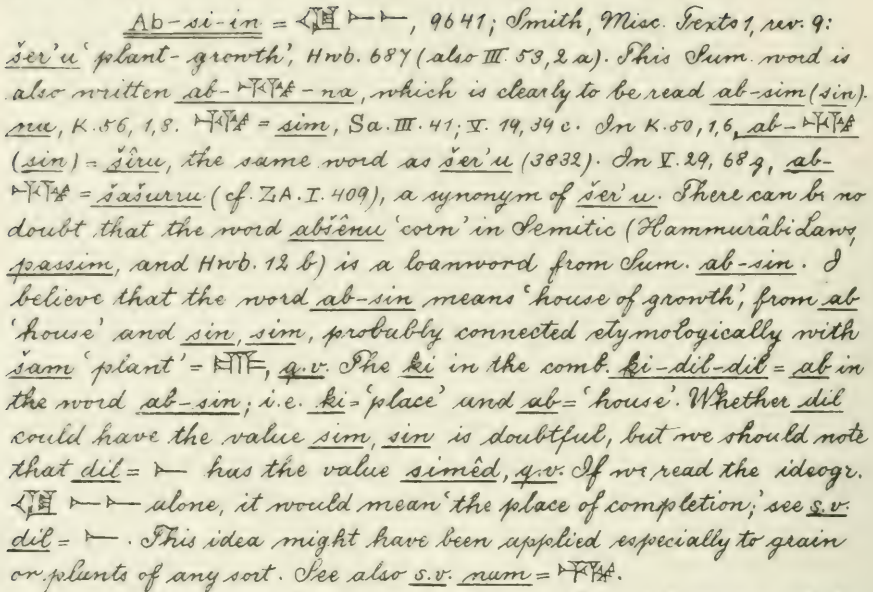 Ab-si-in = 𒆠 𒀸 𒀸, 9641; Smith, Misc. Texts 1, rev. 9:
šer'u 'plant-growth', Hwb. 687 (also III. 53, 2 a). This Sum. word is
also written ab-𒉏-na, which is clearly to be read ab-sim (sin).
na, K. 56, 1, 8. 𒉏 = sim, Sa. III. 41; V. 19, 39 c. In K. 50, 1, 6, ab-𒉏
(sin) = šîru, the same word as šer'u (3832). In V. 29, 68 g, ab-
𒉏 = šašurru (cf. ZA. I. 409), a synonym of šer'u. There can be no
doubt that the word abšênu 'corn' in Semitic (Hammurâbi Laws,
passim, and Hwb. 12 b) is a loanword from Sum. ab-sin. I
believe that the word ab-sin means 'house of growth', from ab
'house' and sin, sim, probably connected etymologically with
šam 'plant' = 𒌑, q.v. The ki in the comb. ki-dil-dil = ab in
the word ab-sin; i.e. ki = 'place' and ab = 'house'. Whether dil
could have the value sim, sin is doubtful, but we should note
that dil = 𒀸 has the value simêd, q.v. If we read the ideogr.
𒆠 𒀸 𒀸 alone, it would mean 'the place of completion;' see s.v.
dil = 𒀸. This idea might have been applied especially to grain
or plants of any sort. See also s.v. num = 𒉏.